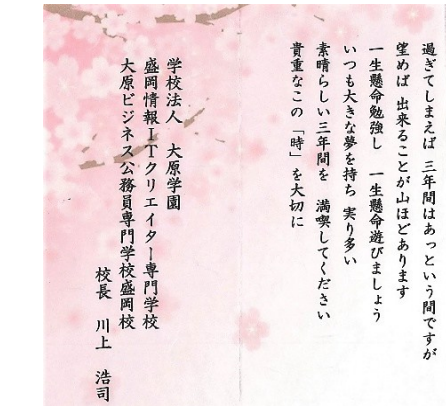 過ぎてしまえば 三年間はあっという間ですが
望めば 出来ることが山ほどあります
一生懸命勉強し 一生懸命遊びましょう
いつも大きな夢を持ち 実り多い
素晴らしい三年間を 満喫してください
貴重なこの「時」を大切に
学校法人 大原学園
盛岡情報ITクリエイター専門学校
大原ビジネス公務員専門学校盛岡校
校長 川上 浩司